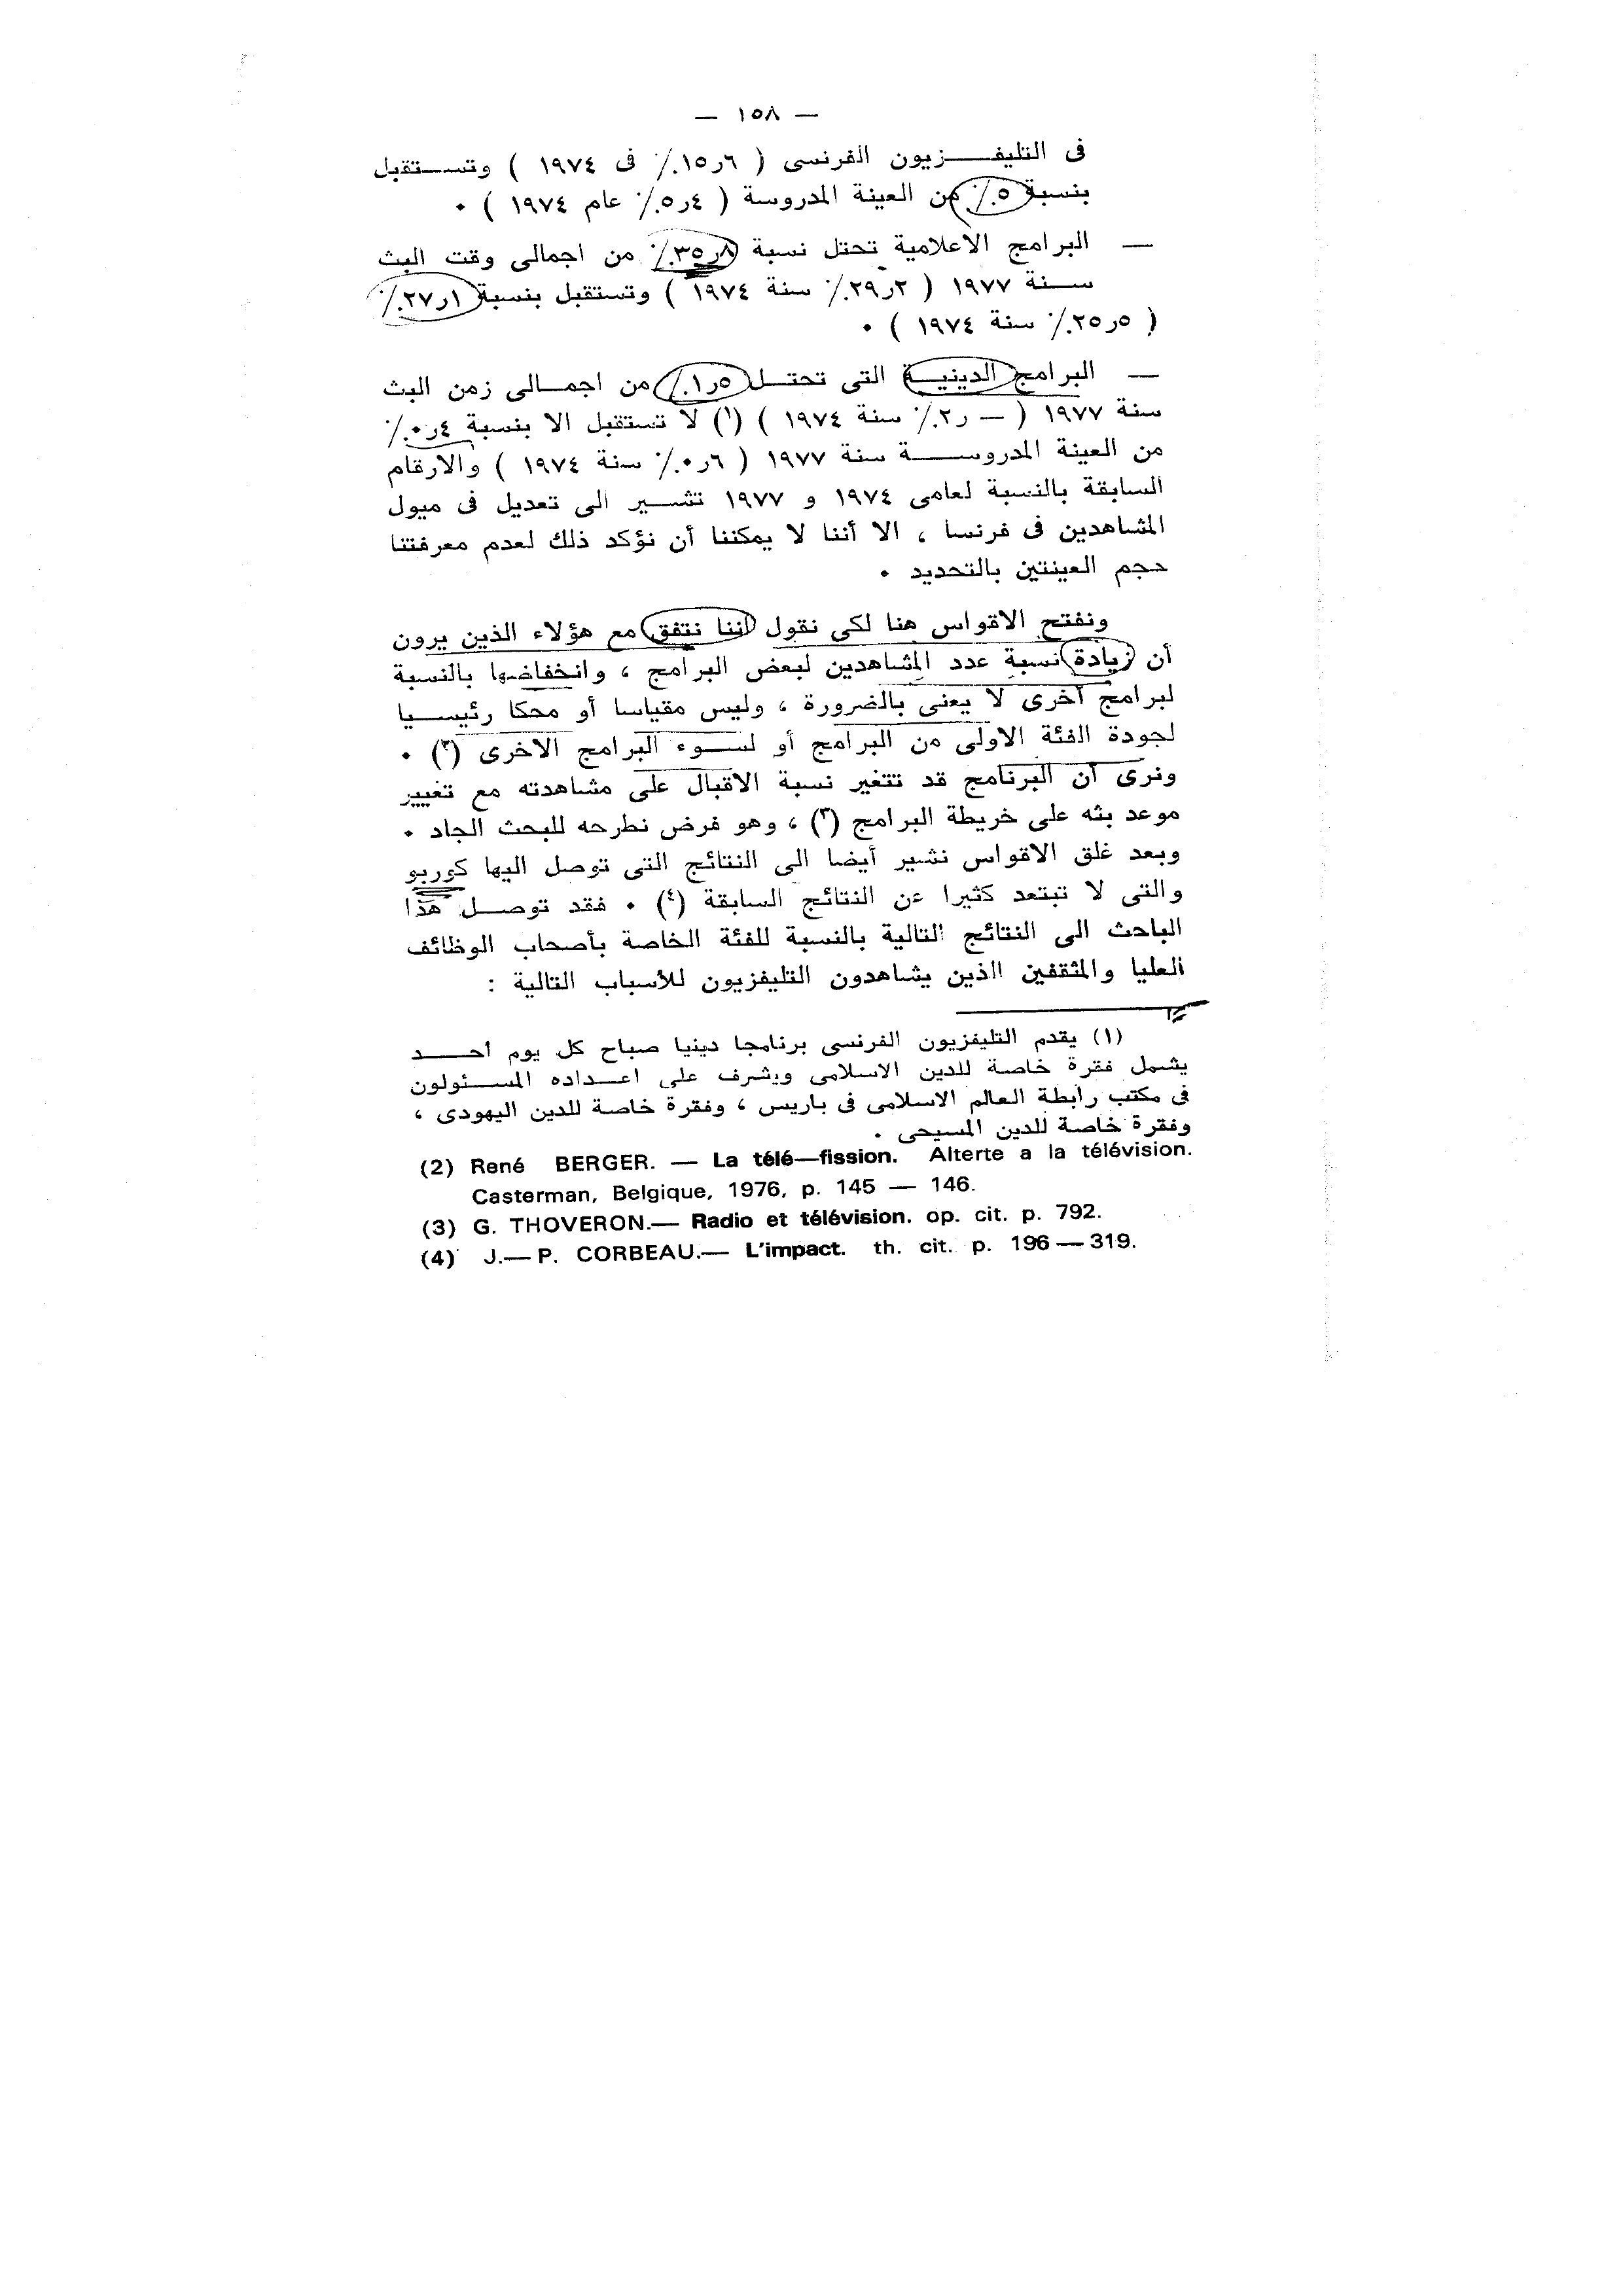 — ١٥٨ —
فى التليفـــزيون الفرنسى ( ٦ر١٥٪ فى ١٩٧٤ ) وتســتقبل
بنسبة ٥٪ من العينة المدروسة ( ٤ر٥٪ عام ١٩٧٤ ) ٠
— البرامج الاعلامية تحتل نسبة ٨ر٣٥٪ من اجمالى وقت البث
ســنة ١٩٧٧ ( ٢ر٢٩٪ سنة ١٩٧٤ ) وتستقبل بنسبة ١ر٢٧٪
( ٥ر٢٥٪ سنة ١٩٧٤ ) ٠
— البرامج الدينيــة التى تحتــل ٥ر١٪ من اجمــالى زمن البث
سنة ١٩٧٧ ( — ر٢٪ سنة ١٩٧٤ ) (١) لا تستقبل الا بنسبة ٤ر٠٪
من العينة المدروســـة سنة ١٩٧٧ ( ٦ر٠٪ سنة ١٩٧٤ ) والارقام
السابقة بالنسبة لعامى ١٩٧٤ و ١٩٧٧ تشــير الى تعديل فى ميول
المشاهدين فى فرنسا ، الا أننا لا يمكننا أن نؤكد ذلك لعدم معرفتنا
حجم العينتين بالتحديد ٠
ونفتح الاقواس هنا لكى نقول اننا نتفق مع هؤلاء الذين يرون
أن زيادة نسبة عدد المشاهدين لبعض البرامج ، وانخفاضها بالنسبة
لبرامج أخرى لا يعنى بالضرورة ، وليس مقياسا أو محكا رئيســيا
لجودة الفئة الاولى من البرامج أو لســوء البرامج الاخرى (٢) ٠
ونرى أن البرنامج قد تتغير نسبة الاقبال على مشاهدته مع تغيير
موعد بثه على خريطة البرامج (٣) ، وهو فرض نطرحه للبحث الجاد ٠
وبعد غلق الاقواس نشير أيضا الى النتائج التى توصل اليها كوربو
والتى لا تبتعد كثيرا عن النتائج السابقة (٤) ٠ فقد توصــل هذا
الباحث الى النتائج التالية بالنسبة للفئة الخاصة بأصحاب الوظائف
العليا والمثقفين الذين يشاهدون التليفزيون للأسباب التالية :
(١) يقدم التليفزيون الفرنسى برنامجا دينيا صباح كل يوم أحـــد
يشمل فقرة خاصة للدين الاسلامى ويشرف على اعــداده المســئولون
فى مكتب رابطة العالم الاسلامى فى باريس ، وفقرة خاصة للدين اليهودى ،
وفقرة خاصة للدين المسيحى ٠
(2) René BERGER. — La télé—fission. Alterte a la télévision.
Casterman, Belgique, 1976, p. 145 — 146.
(3) G. THOVERON.— Radio et télévision. op. cit. p. 792.
(4) J.— P. CORBEAU.— L'impact. th. cit. p. 196 — 319.